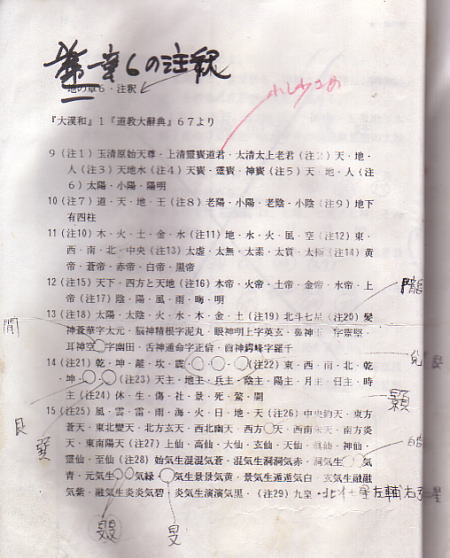 第一章6の注釈
地の章6・注釈
『大漢和』1『道教大辞典』67より
9（注1）玉清原始天尊・上清靈寳道君・太清太上老君（注2）天・地・
人（注3）天地水（注4）天寳・靈寳・神寳（注5）天・地・人（注
6）太陽・小陽・陽明
10（注7）道・天・地・王（注8）老陽・小陽・老陰・小陰（注9）地下
有四柱
11（注10）木・火・土・金・水（注11）地・水・火・風・空（注12）東・
西・南・北・中央（注13）太虚・太無・太素・太質・太極（注14）黄
帝・蒼帝・赤帝・白帝・黒帝
12（注15）天下・四方と天地（注16）木帝・火帝・土帝・金帝・水帝・上
帝（注17）陰・陽・風・雨・晦・明
13（注18）太陽・太陰・火・水・木・金・土（注19）北斗七星（注20）髪
神蒼華字太元・脳神精根字泥丸・眼神明上字英玄・鼻神 字靈堅・
耳神空 字幽田・舌神通命字正倫・歯神 字羅千
14（注21）乾・坤・離・坎・震・（注22）東・西・南・北・乾
・坤・（注23）天主・地主・兵主・陰主・陽主・月主・日主・時
主（注24）休・生・傷・社・景・死・驚・開
15（注25）風・雲・雷・雨・海・火・日・地・天（注26）中央鈞天・東方
蒼天・東北變天・北方玄天・西北幽天・西方 天・西南朱天・南方炎
天・東南陽天（注27）上仙・高仙・大仙・玄仙・天仙・真仙・神仙・
靈仙・至仙（注28）始気生混混気蒼・混気生洞洞気赤・洞気生 気
青・元気生 気緑・気生景景気黄・景気生遁遁気白・玄気生融融
気紫・融気生炎炎気碧・炎気生演演気黒・（注29）九皇・北斗
左輔右 星
艮